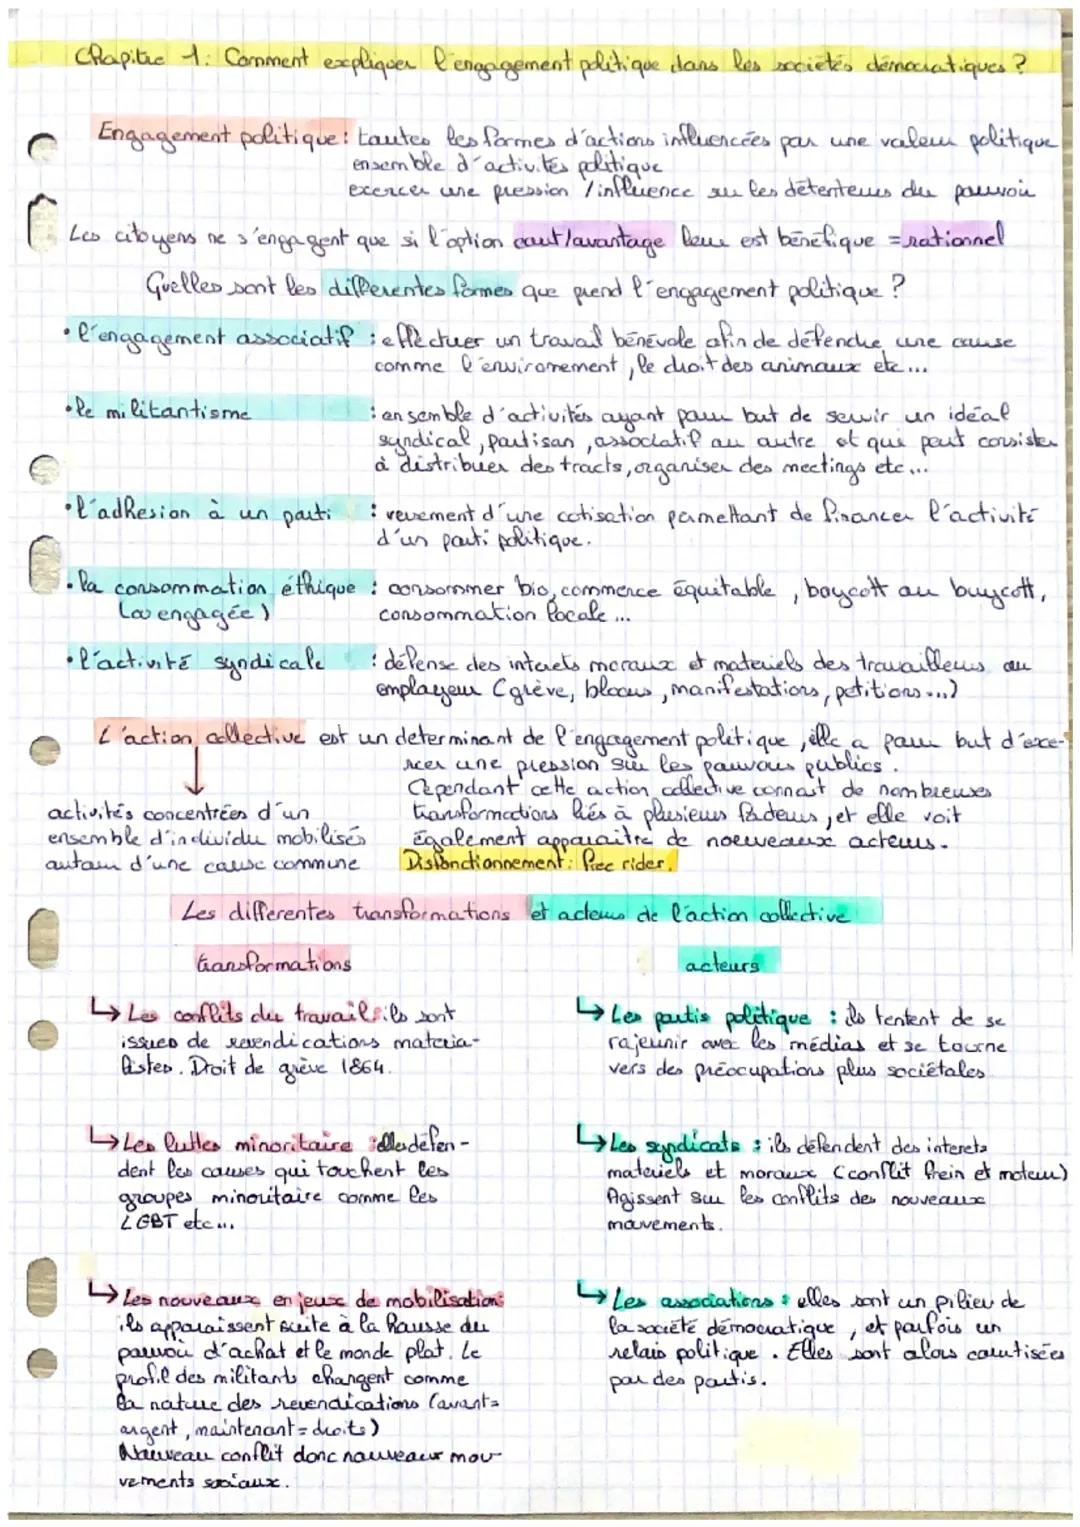 Chapitre 1: Comment expliquer l'engagement politique dans les sociétés démocratiques ?
Engagement politique: toutes les formes d'actions influencées par une valeur politique
ensemble d'activités politique
exercer une pression / influence sur les détenteurs du pouvoir
Les citoyens ne s'engagent que si l'option cout/avantage leur est bénéfique = rationnel
Quelles sont les différentes formes que prend l'engagement politique ?
• l'engagement associatif : effectuer un travail bénévole afin de défendre une cause
comme l'environement, le droit des animaux etc...
• le militantisme : ensemble d'activités ayant pour but de servir un idéal
syndical, partisan, associatif ou autre et qui peut consister
à distribuer des tracts, organiser des meetings etc...
• l'adhésion à un parti : versement d'une cotisation permettant de financer l'activité
d'un parti politique.
• la consommation éthique : consommer bio, commerce équitable, boycott ou buycott,
(ou engagée) consommation locale ...
• l'activité syndicale : défense des interets moraux et materiels des travailleurs ou
employeur (grève, blocus, manifestations, petitions ...)
L'action collective est un determinant de l'engagement politique, elle a pour but d'exe-
rcer une pression sur les pouvoirs publics.
Cependant cette action collective connait de nombreuses
transformations liés à plusieurs facteurs, et elle voit
également apparaitre de nouveaux acteurs.
Disfonctionnement: free rider.
activités concentrées d'un
ensemble d'individu mobilisés
autour d'une cause commune
Les differentes transformations et acteurs de l'action collective
transformations
acteurs
↳ Les conflits du travail: ils sont
issues de revendications materia-
listes. Droit de grève 1864.
↳ Les partis politique : ils tentent de se
rajeunir avec les médias et se tourne
vers des préocupations plus sociétales
↳ Les luttes minoritaire : elles défen-
dent les causes qui touchent les
groupes minoritaire comme les
LGBT etc...
↳ Les syndicats : ils défendent des interets
materiels et moraux (conflit frein et moteur)
Agissent sur les conflits des nouveaux
mouvements.
↳ Les nouveaux enjeux de mobilisation:
ils apparaissent suite à la hausse du
pouvoir d'achat et le monde plat. Le
profil des militants changent comme
la nature des revendications (avant=
argent, maintenant= droits)
Nouveau conflit donc nouveaux mou-
vements sociaux.
↳ Les associations : elles sont un pilier de
la société démocratique, et parfois un
relais politique. Elles sont alors courtisées
par des partis.